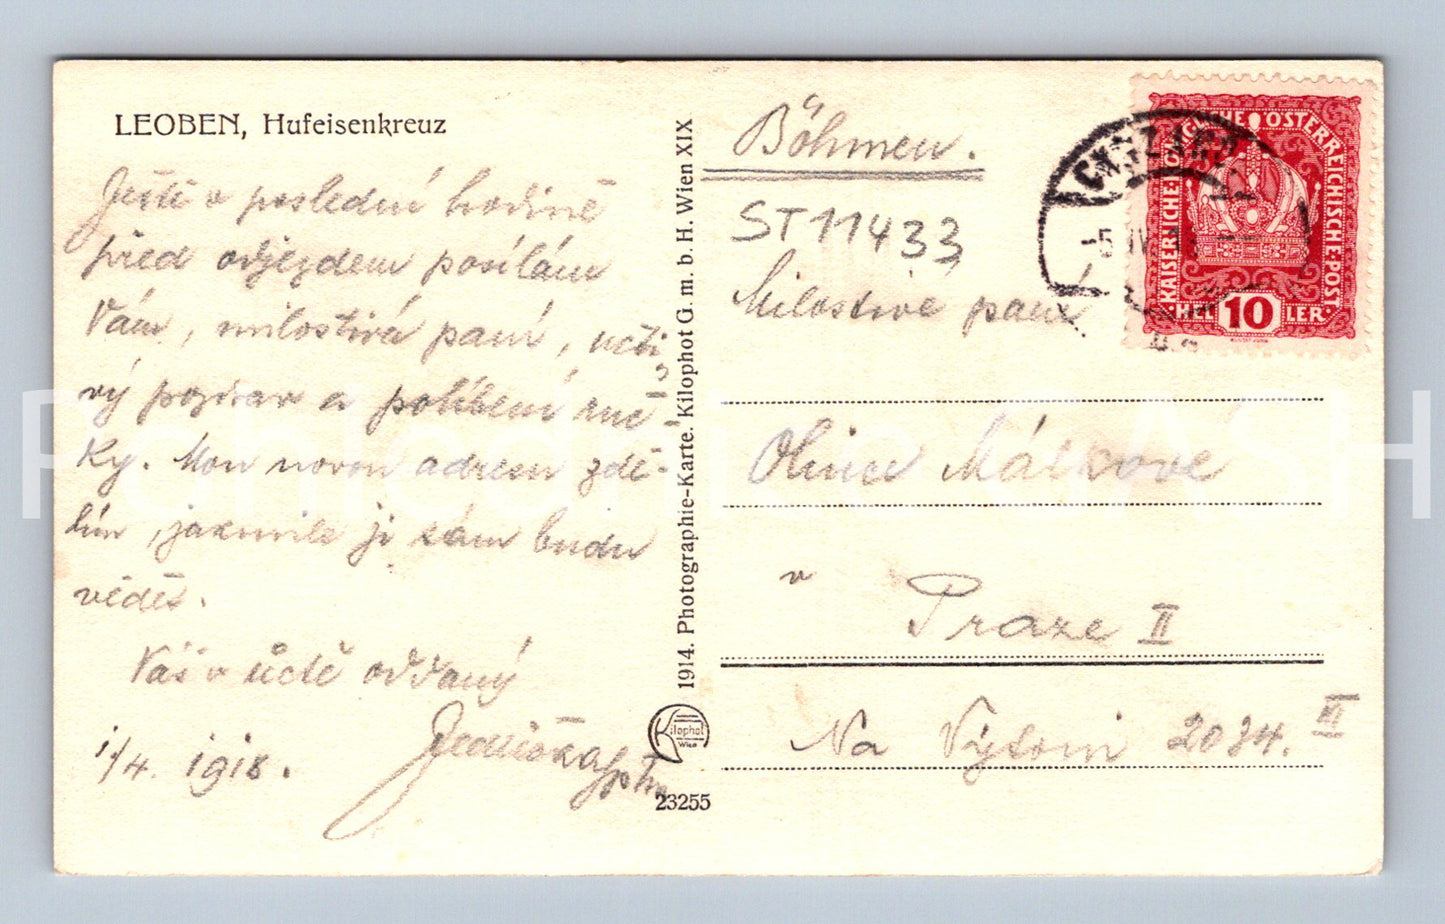 LEOBEN, Hufeisenkreuz
Ještě v poslední hodině
před odjezdem posílám
Vám, milostivá paní, ucti-
vý pozdrav a políbení ruč-
ky. Mou novou adresu sdě-
lím, jakmile ji sám budu
věděti.
Váš v úctě oddaný
1/4. 1918.
1914. Photographie-Karte. Kilophot G. m. b. H. Wien XIX
Kilophot
Wien
23255
Böhmen.
ST11433
Milostivé paní
v
Praze II
Na Výtoni 2034. III
KAISERLICHE KÖNIGLICHE ÖSTERREICHISCHE POST
HEL 10 LER
-5 IV